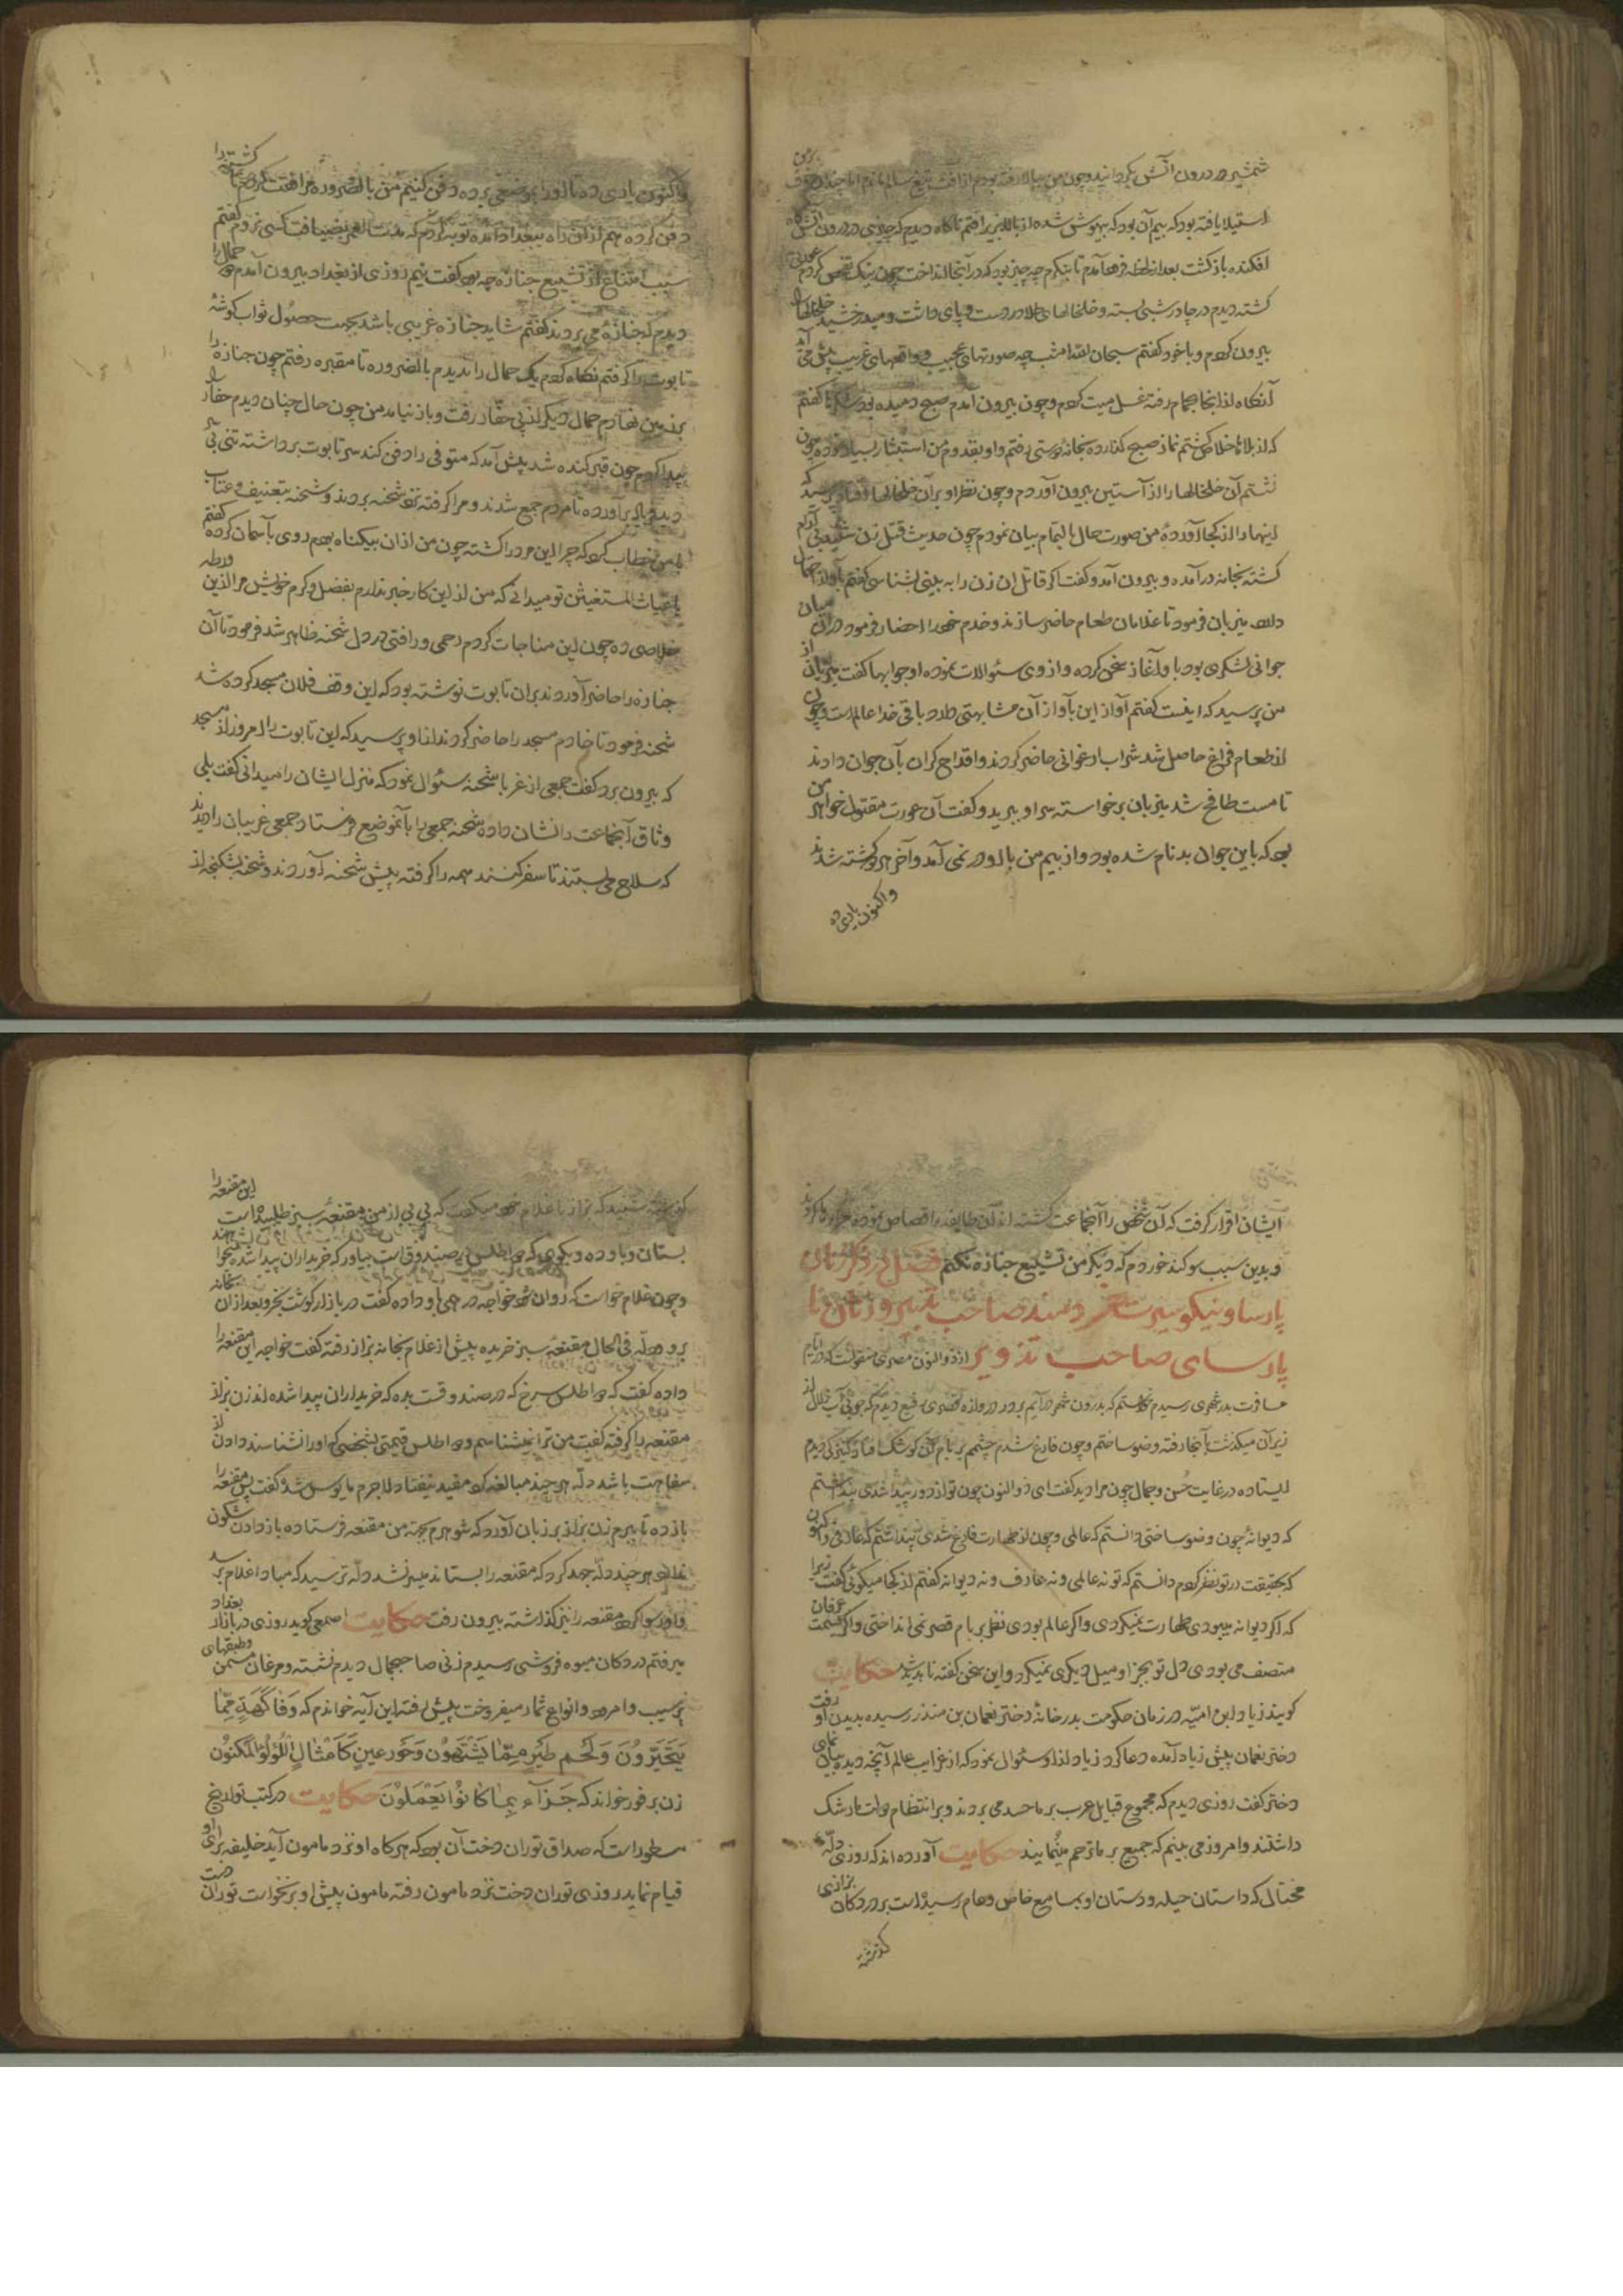 شمشیر در درون آتش بگردانید و چون من ببالا رفته بودم از آفت تیغ سالم ماندم اما چندان خوف بر من
استیلا یافته بود که بیم آن بود که بیهوش شده از بالا بزیر افتم ناگاه دیدم که چیزی در درون آتش گاه
افکنده بازگشت بعد از لحظه فرو آمدم تا بنگرم چه چیز بود که در آنجا انداخت چون نیک تفحص کردم عورتی
کشته دیدم در چادر شبی بسته و خلخالهای طلا در دست و پای داشت و میدرخشید خلخالها را
بیرون کردم و با خود گفتم سبحان الله امشب چه صورتهای عجیب و واقعهای غریب پیش می آید
آنگاه از آنجا بحمام رفته غسل میت کردم و چون بیرون آمدم صبح دمیده بود شکرها گفتم
که از بلاها خلاص گشتم نماز صبح گذارده بخانه دوستی رفتم و او بقدوم من استبشار بسیار نموده چون
نشستم آن خلخالها را از آستین بیرون آوردم و چون نظر او بر آن خلخالها افتاد پرسید که
اینها را از کجا آورده من صورت حال بالتمام بیان نمودم چون حدیث قتل زن شنید بی آرام
گشته بخانه در آمده و بیرون آمد و گفت اگر قاتل آن زن را به بینی بشناسی گفتم بآواز احتمال
دارد میزبان فرمود تا غلامان طعام حاضر سازند و خدم خود را احضار فرمود در آن میان
جوانی لشکری بود با او آغاز سخن کرده و از وی سئوالات نموده او جوابها گفت میزبان از
من پرسید که اینست گفتم آواز این بآواز آن مشابهتی دارد باقی خدا عالمست و چون
از طعام فراغ حاصل شد شراب ارغوانی حاضر کردند و اقداح گران بآن جوان دادند
تا مست طافح شد میزبان برخاسته سر او ببرید و گفت آن عورت مقتول خواهر من
بود که باین جوان بدنام شده بود و از بیم من با او در نمی آمد و آخر هر دو کشته شدند
و اکنون یاری ده
و اکنون یاری ده تا او را بموضعی برده دفن کنیم من بالضروره مرافقت کرده تا کشته را
دفن کرده هم از آن راه ببغداد آمده توبه کردم که مدت العمر بضیافت کسی نروم گفتم
سبب امتناع از تشییع جنازه چه بود گفت نیم روزی از بغداد بیرون آمدم حمال را
دیدم که جنازهٔ می بردند گفتم شاید جنازه غریبی باشد بجهت حصول ثواب گوشهٔ
تابوت را گرفتم نگاه کردم یک حمال را ندیدم بالضروره تا مقبره رفتم چون جنازه را
بر زمین نهادم حمال دیگر از پی حفار رفت و باز نیامد من چون حال چنان دیدم حفار را
پیدا کردم چون قبر کنده شد پیش آمد که متوفی را دفن کند سر تابوت برداشته تنی بی سر
دید فریاد برآورده تا مردم جمع شدند و مرا گرفته نزد شحنه بردند و شحنه بتعنیف و عتاب
با من خطاب کرد که چرا این مرد را کشته چون من از آن بیگناه بودم روی بآسمان کرده گفتم
یا غیاث المستغیثین تو میدانی که من از این کار خبر ندارم بفضل و کرم خویش مرا از این ورطه
خلاصی ده چون این مناجات کردم رحمی و رافتی در دل شحنه ظاهر شد فرمود تا آن
جنازه را حاضر آوردند بر آن تابوت نوشته بود که این وقف فلان مسجد کرده شد
شحنه فرمود تا خادم مسجد را حاضر کردند از او پرسید که این تابوت را امروز از مسجد
که بیرون برد گفت جمعی از غربا شحنه سئوال نمود که منزل ایشان را میدانی گفت بلی
وثاق آنجماعت را نشان داده شحنه جمعی را بآنموضع فرستاد جمعی غریبان را دیدند
که سلاح می بستند تا سفر کنند همه را گرفته پیش شحنه آوردند و شحنه بشکنجه از
ایشان اقرار گرفت که آن شخص را آنجماعت کشته اند آن طایفه را قصاص نموده مرا رها کردند
و بدین سبب سوگند خوردم که دیگر من تشییع جنازه نکنم فصل در ذکر زنان
پارسا و نیکو سیرت خردمند صاحب تدبیر و زنان نا
پارسای صاحب تذویر از ذوالنون مصری منقولست که در ایام
مسافرت بدر شهری رسیدم خواستم که بدرون شهر در آیم بر در دروازه قصری رفیع دیدم که جوئی آب زلال از
زیر آن میگذشت بآنجا رفته وضو ساختم و چون فارغ شدم چشمم بر بام آن کوشک افتاد کنیزکی دیدم
ایستاده در غایت حسن و جمال چون مرا دید گفت ای ذوالنون چون تو از دور پیدا شدی پنداشتم
که دیوانهٔ چون وضو ساختی دانستم که عالمی و چون از طهارت فارغ شدی پنداشتم که عارفی و اکنون
که بحقیقت در تو نظر کردم دانستم که تو نه عالمی و نه عارف و نه دیوانه گفتم از کجا میگوئی گفت زیرا
که اگر دیوانه میبودی طهارت نمیکردی و اگر عالم بودی نظر بر بام قصر نمی انداختی و اگر بسمت عرفان
متصف می بودی دل تو بجز او میل دیگری نمیکرد و این سخن گفته ناپدید شد حکایت
گویند زیاد ابن امیه در زمان حکومت بدر خانهٔ دختر نعمان بن منذر رسیده بدیدن او رفت
دختر نعمان پیش زیاد آمده دعا کرد زیاد از او سئوال نمود که از غرایب عالم آنچه دیده بیان نمای
دختر گفت روزی دیدم که مجموع قبایل عرب بر ما حسد می بردند و بر انتظام دولت ما رشک
داشتند و امروز می بینم که جمیع بر ما ترحم مینمایند حکایت آورده اند که روزی دلّهٔ
محتال که داستان حیله و دستان او بمسامع خاص و عام رسیده است بر در دکان بزازی
گذشته
گذشته شنید که بزاز با غلام خود میگفت که بی بی از من مقنعه سبز طلبیده است این مقنعه را
بستان و باو ده و بگوی که دو اطلس در صندوق است بیاور که خریداران پیدا شده
و چون غلام خواست که روان شود خواجه درهمی باو داده گفت در بازار گوشت بخر و بعد از آن بخانه
برو دلّه فی الحال مقنعه سبز خریده پیش از غلام بخانه بزاز رفته گفت خواجه این مقنعه را
داده گفت که دو اطلس سرخ که در صندوقست بده که خریداران پیدا شده اند زن بزاز
مقنعه را گرفته گفت من ترا نمیشناسم و دو اطلس قیمتی بشخصی که او را نشناسند دادن از
سفاهت باشد دلّه هر چند مبالغه کرد مفید نیفتاد لاجرم مایوس شد گفت پس مقنعه را
باز ده تا ببرم زن بزاز بر زبان آورد که شوهرم بجهت من مقنعه فرستاده باز دادن شگون
ندارد هر چند دلّه جهد کرد که مقنعه را بستاند میسر نشد دلّه ترسید که مبادا غلام برسد
و او رسوا گردد مقنعه را نیز گذاشته بیرون رفت حکایت اصمعی گوید روزی در بازار بغداد
میرفتم در دکان میوه فروشی رسیدم زنی صاحبجمال دیدم نشسته و مرغان مسمن و طبقهای
پر سیب و امرود و انواع ثمار میفروخت پیش رفته این آیه خواندم که وَفَاكِهَةٍ مِّمَّا
يَتَخَيَّرُونَ وَلَحْمِ طَيْرٍ مِمَّا يَشْتَهُونَ وَحُورٍ عِينٍ كَأَمْثَالِ اللُّؤْلُؤِ الْمَكْنُونِ
زن بر فور خواند که جَزَاءً بِمَا كَانُوا يَعْمَلُونَ حکایت در کتب تواریخ
مسطور است که صداق توران دخت آن بود که هرگاه او نزد مامون آید خلیفه برای او
قیام نماید روزی توران دخت نزد مامون رفته مامون پیش او برنخواست توران دخت